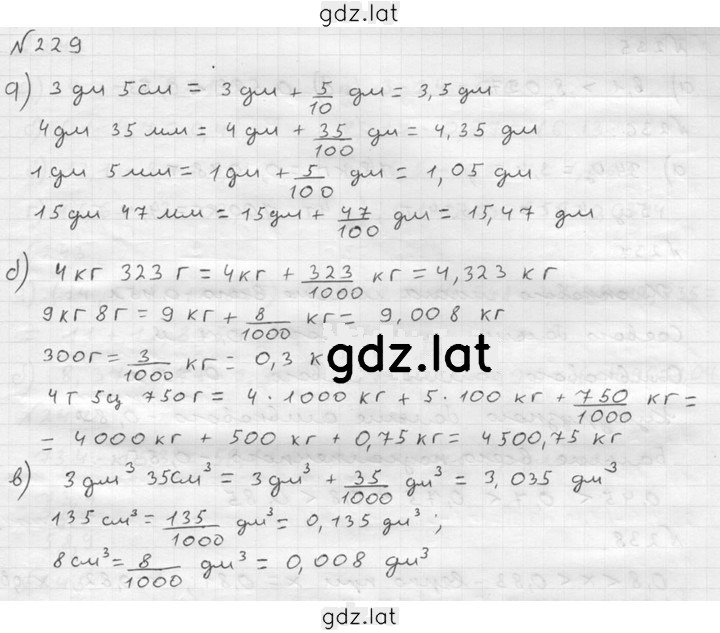 gdz.lat
№229
а) 3 дм 5 см = 3 дм + 5/10 дм = 3,5 дм
4 дм 35 мм = 4 дм + 35/100 дм = 4,35 дм
1 дм 5 мм = 1 дм + 5/100 дм = 1,05 дм
15 дм 47 мм = 15 дм + 47/100 дм = 15,47 дм
б) 4 кг 323 г = 4 кг + 323/1000 кг = 4,323 кг
9 кг 8 г = 9 кг + 8/1000 кг = 9,008 кг
300 г = 3/1000 кг = 0,3 к
gdz.lat
4 т 5 ц 750 г = 4 · 1000 кг + 5 · 100 кг + 750/1000 кг =
= 4000 кг + 500 кг + 0,75 кг = 4500,75 кг
в) 3 дм³ 35 см³ = 3 дм³ + 35/1000 дм³ = 3,035 дм³
135 см³ = 135/1000 дм³ = 0,135 дм³;
8 см³ = 8/1000 дм³ = 0,008 дм³
gdz.lat